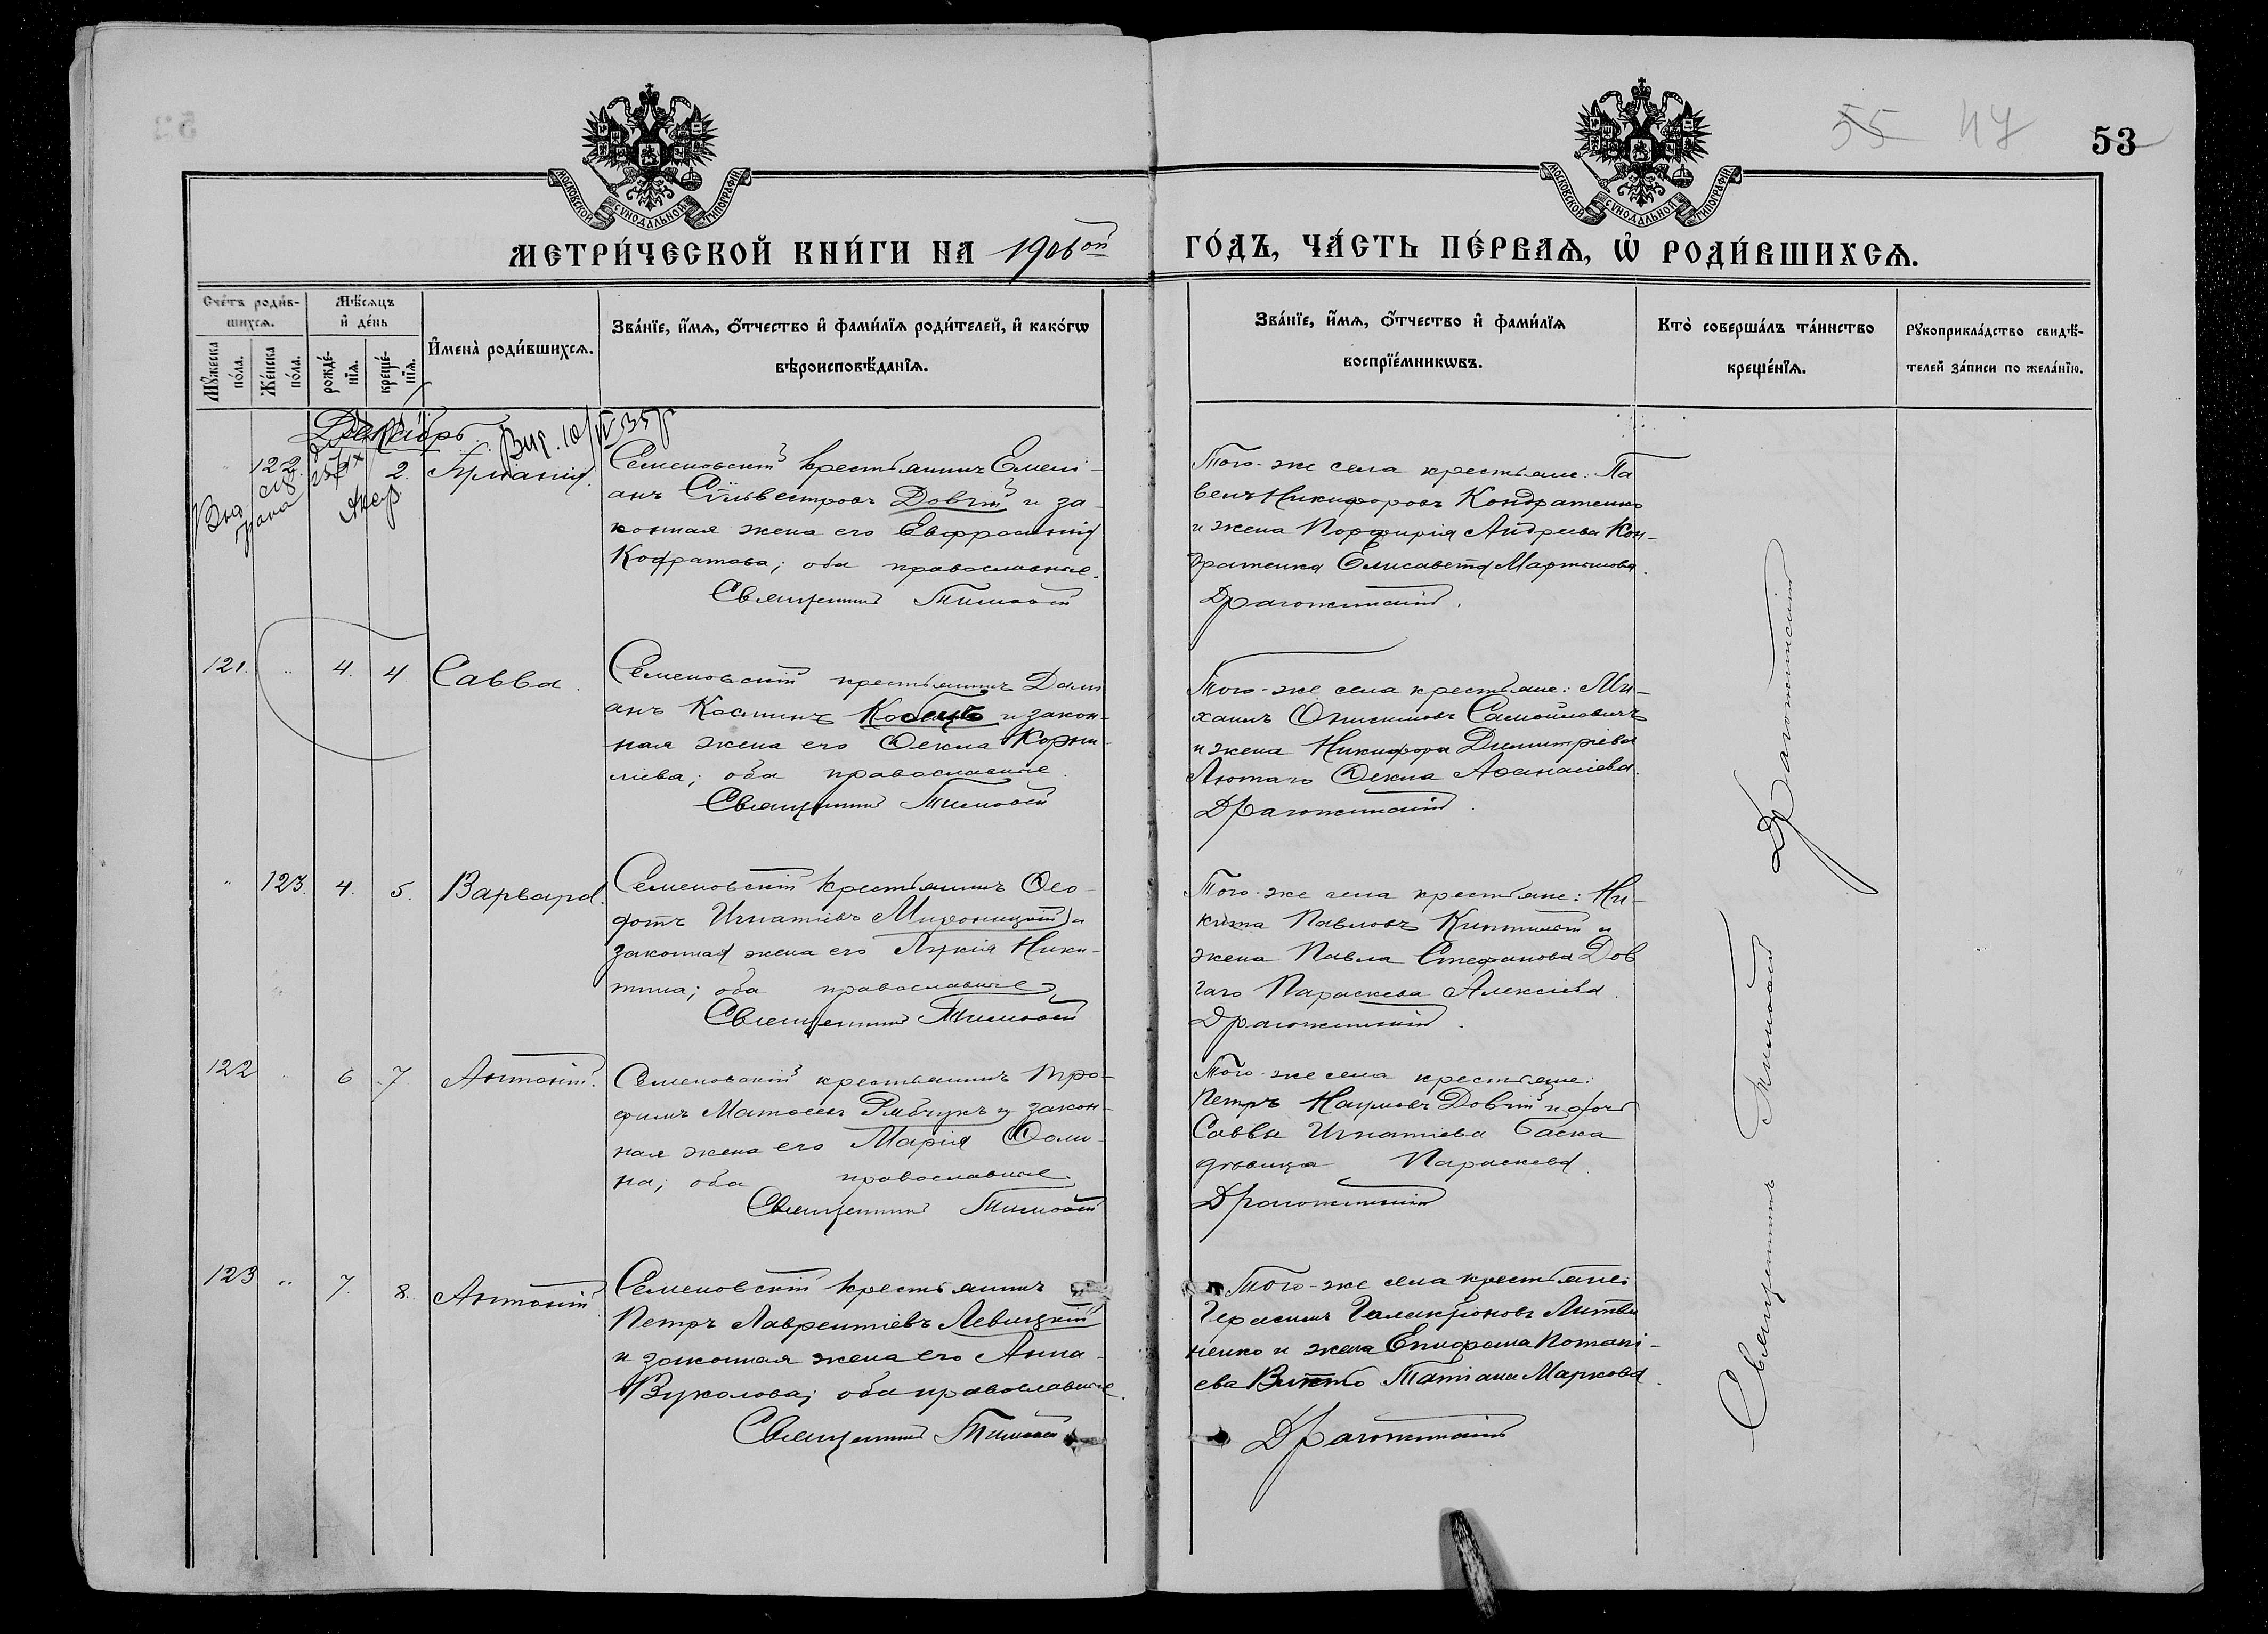 55 47 53
МОСКОВСКОЙ СѴНОДАЛЬНОЙ ТИПОГРАФІИ
МОСКОВСКОЙ СѴНОДАЛЬНОЙ ТИПОГРАФІИ
МЕТРИ́ЧЕСКОЙ КНИ́ГИ НА 1906ой ГО́ДЪ, ЧА́СТЬ ПЕ́РВАѦ, Ѡ҆ РОДИ́ВШИХСѦ.
Сче́тъ роди́в-
шихсѧ.
Мꙋ́жеска по́ла.
Же́нска по́ла.
Мѣ́сѧцъ
и҆ де́нь
рожде́-
нїѧ.
креще́-
нїѧ.
И҆мена̀ роди́вшихсѧ.
Зва́нїе, и҆́мѧ, ѻ҆́тчество и҆ фами́лїѧ роди́телей, и҆ како́гѡ
вѣроисповѣ́данїѧ.
Зва́нїе, и҆́мѧ, ѻ҆́тчество и҆ фами́лїѧ
воспрїе́мникѡвъ.
Кто̀ соверша́лъ та́инство
креще́нїѧ.
Рꙋкоприкла́дство свидѣ́-
телей за́писи по жела́нїю.
Декабрь
122. 2.
Семеновскій крестьянинъ Емелі-
анъ Сильвестровъ Довгій и за-
конная жена его Евфросинія
Кодратова; оба православные.
Священникъ Тимофей
Того-же села крестьяне: Па
велъ Никифоровъ Кондратенко
и жена Порфирія Андреева Кон-
дратенка Елисавета Мартинова.
Драгожинскій.
121. " 4. 4 Савва.
Семеновскій крестьянинъ Дамі
анъ Косминъ и закон-
ная жена его Ѳекла Корни-
ліева; оба православные.
Священникъ Тимофей
Того-же села крестьяне: Ми-
хаилъ Онисимовъ Самойловичъ
и жена Никифора Димитріева
Лютаго Ѳекла Аѳанасіева.
Драгожинскій.
" 123. 4. 5. Варвара.
Семеновскій крестьянинъ Ѳео-
дотъ Игнатіевъ и
законная жена его Лукія Ники-
тина; оба православные
Священникъ Тимофей
Того-же села крестьяне: Ни-
кита Павловъ и
жена Павла Стефанова Дов
гаго Параскева Алексіева.
Драгожинскій.
122 " 6 7 Антоній.
Семеновскій крестьянинъ Тро-
фимъ Матѳеевъ Рябчукъ и закон-
ная жена его Марія Ѳоми-
на; оба православные.
Священникъ Тимофей
Того-же села крестьяне:
Петръ Наумовъ Довгій и дочь
Саввы Игнатіева Баска
дѣвица Параскева.
Драгожинскій
123 " 7. 8. Антоній
Семеновскій крестьянинъ
Петръ Лаврентіевъ Левицкій
и законная жена его Анна
Вуколова; оба православные.
Священникъ Тимофей
Того-же села крестьяне:
Герасимъ Галактіоновъ Литви
ненко и жена Епифана Потапі-
ева Татіана Маркова.
Драгожинскій
Священникъ Тимофей Драгожинскій